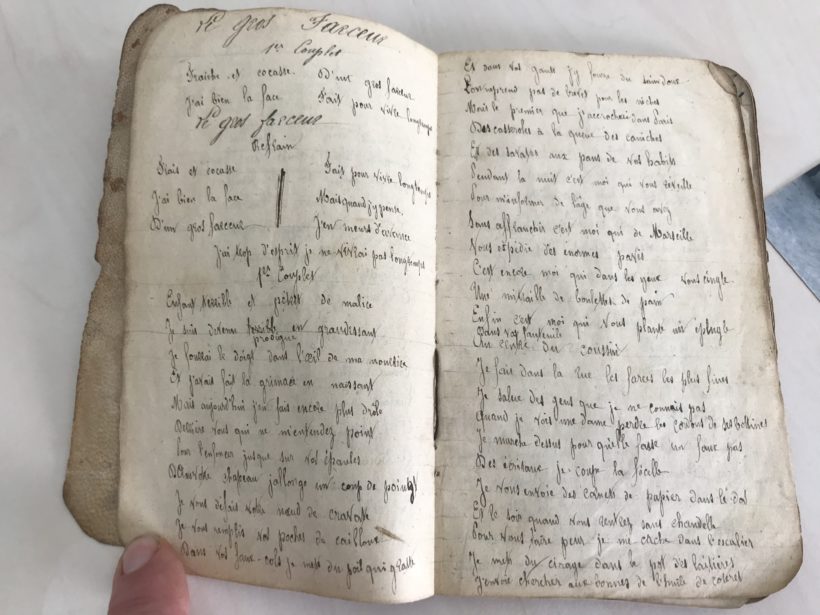 Le gros Farceur
1er Couplet
Fraiche et cocasse D'un gros farceur
J'ai bien la face Fait pour vivre longtemps
Le gros farceur
Refrain
Frais et cocasse Fait pour vivre longtemps
J'ai bien la face Mais quand j'y pense
D'un gros farceur J'en meurs d'avance
J'ai trop d'esprit je ne vivrai pas longtemps
1er Couplet
Enfant terrible et pétris de malice
Je suis devenu terrible en grandissant
prodigue
Je fourrai le doigt dans l'œil de ma nourrice
Et j'avais fait la grimace en naissant
Mais aujourd'hui j'en fais encore plus drôle
Derrière vous qui ne m'entendez point
Pour l'enfoncer jusque sur vos épaules
votre chapeau j'allonge un coup de poing
Je vous défais votre nœud de cravate
Je vous remplis vos poches de cailloux
Dans vos faux-cols je mets du poil qui gratte
Et dans vos gants j'y fourre du saindoux
pas de brevet pour les niches
Mais le premier que j'accrochai dans Paris
Des casseroles à la queue des caniches
Et des savates aux pans de vos habits
Pendant la nuit c'est moi qui vous réveille
Pour m'informer de l'âge que vous avez
Sans affranchir c'est moi qui de Marseille
Vous expédie des énormes pavés
C'est encore moi qui dans les yeux vous cingle
Une mitraille de boulettes de pain
Enfin c'est moi qui vous plante un épingle
Dans vos fauteuils
Au centre du coussin
Je fais dans la rue les farces les plus fines
Je salue des gens que je ne connais pas
Quand je vois une dame perdre les cordons de ses bottines
Je marche dessus pour qu'elle fasse un faux pas
Des écriteaux je coupe la ficelle
Je vous envoie des carnets de papier dans le dos
Et le soir quand vous rentrez sans chandelle
Pour vous faire peur je me cache dans l'escalier
Je mets du cirage dans le pot des
J'envoie chercher aux bonnes de l'huile de cotrets